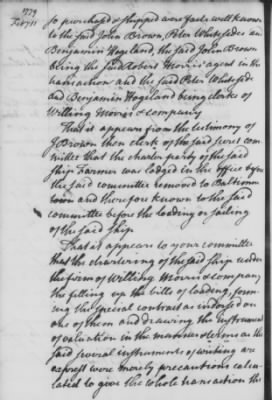 1779
Feb 11
so purchased & shipped were facts well known
to the said John Brown, Peter Whitesides and
Benjamin Hogeland, the said John Brown
being the said Robert Morris's agent in the
transaction and the said Peter Whiteside
and Benjamin Hogeland being clerks of
Willing Morris & company
That it appears from the testimony of
J Brown then clerk of the said secret com-
mittee that the charter party of the said
ship Farmer was lodged in the office before
the said committee removed to Baltimore
town and therefore known to the said
committee before the loading or sailing
of the said ship
That it appears to your committee
that the chartering of the said ship under
the firm of Willing Morris & company
the filling up the bills of loading, form-
ing the special contract as indorsed on
one of them and drawing the instrument
of valuation in the manner & terms as the
said several instruments of writing are
express'd were merely precautions calcu-
lated to give the whole transaction the